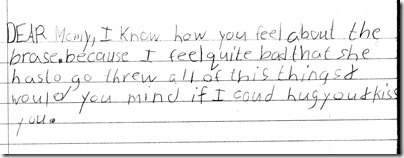 DEAR Momy, I Know how you feel about the
brase. because I feel quite bad that she
hasto go threw all of this things &
would you mind if I coud hug you & kiss
you.